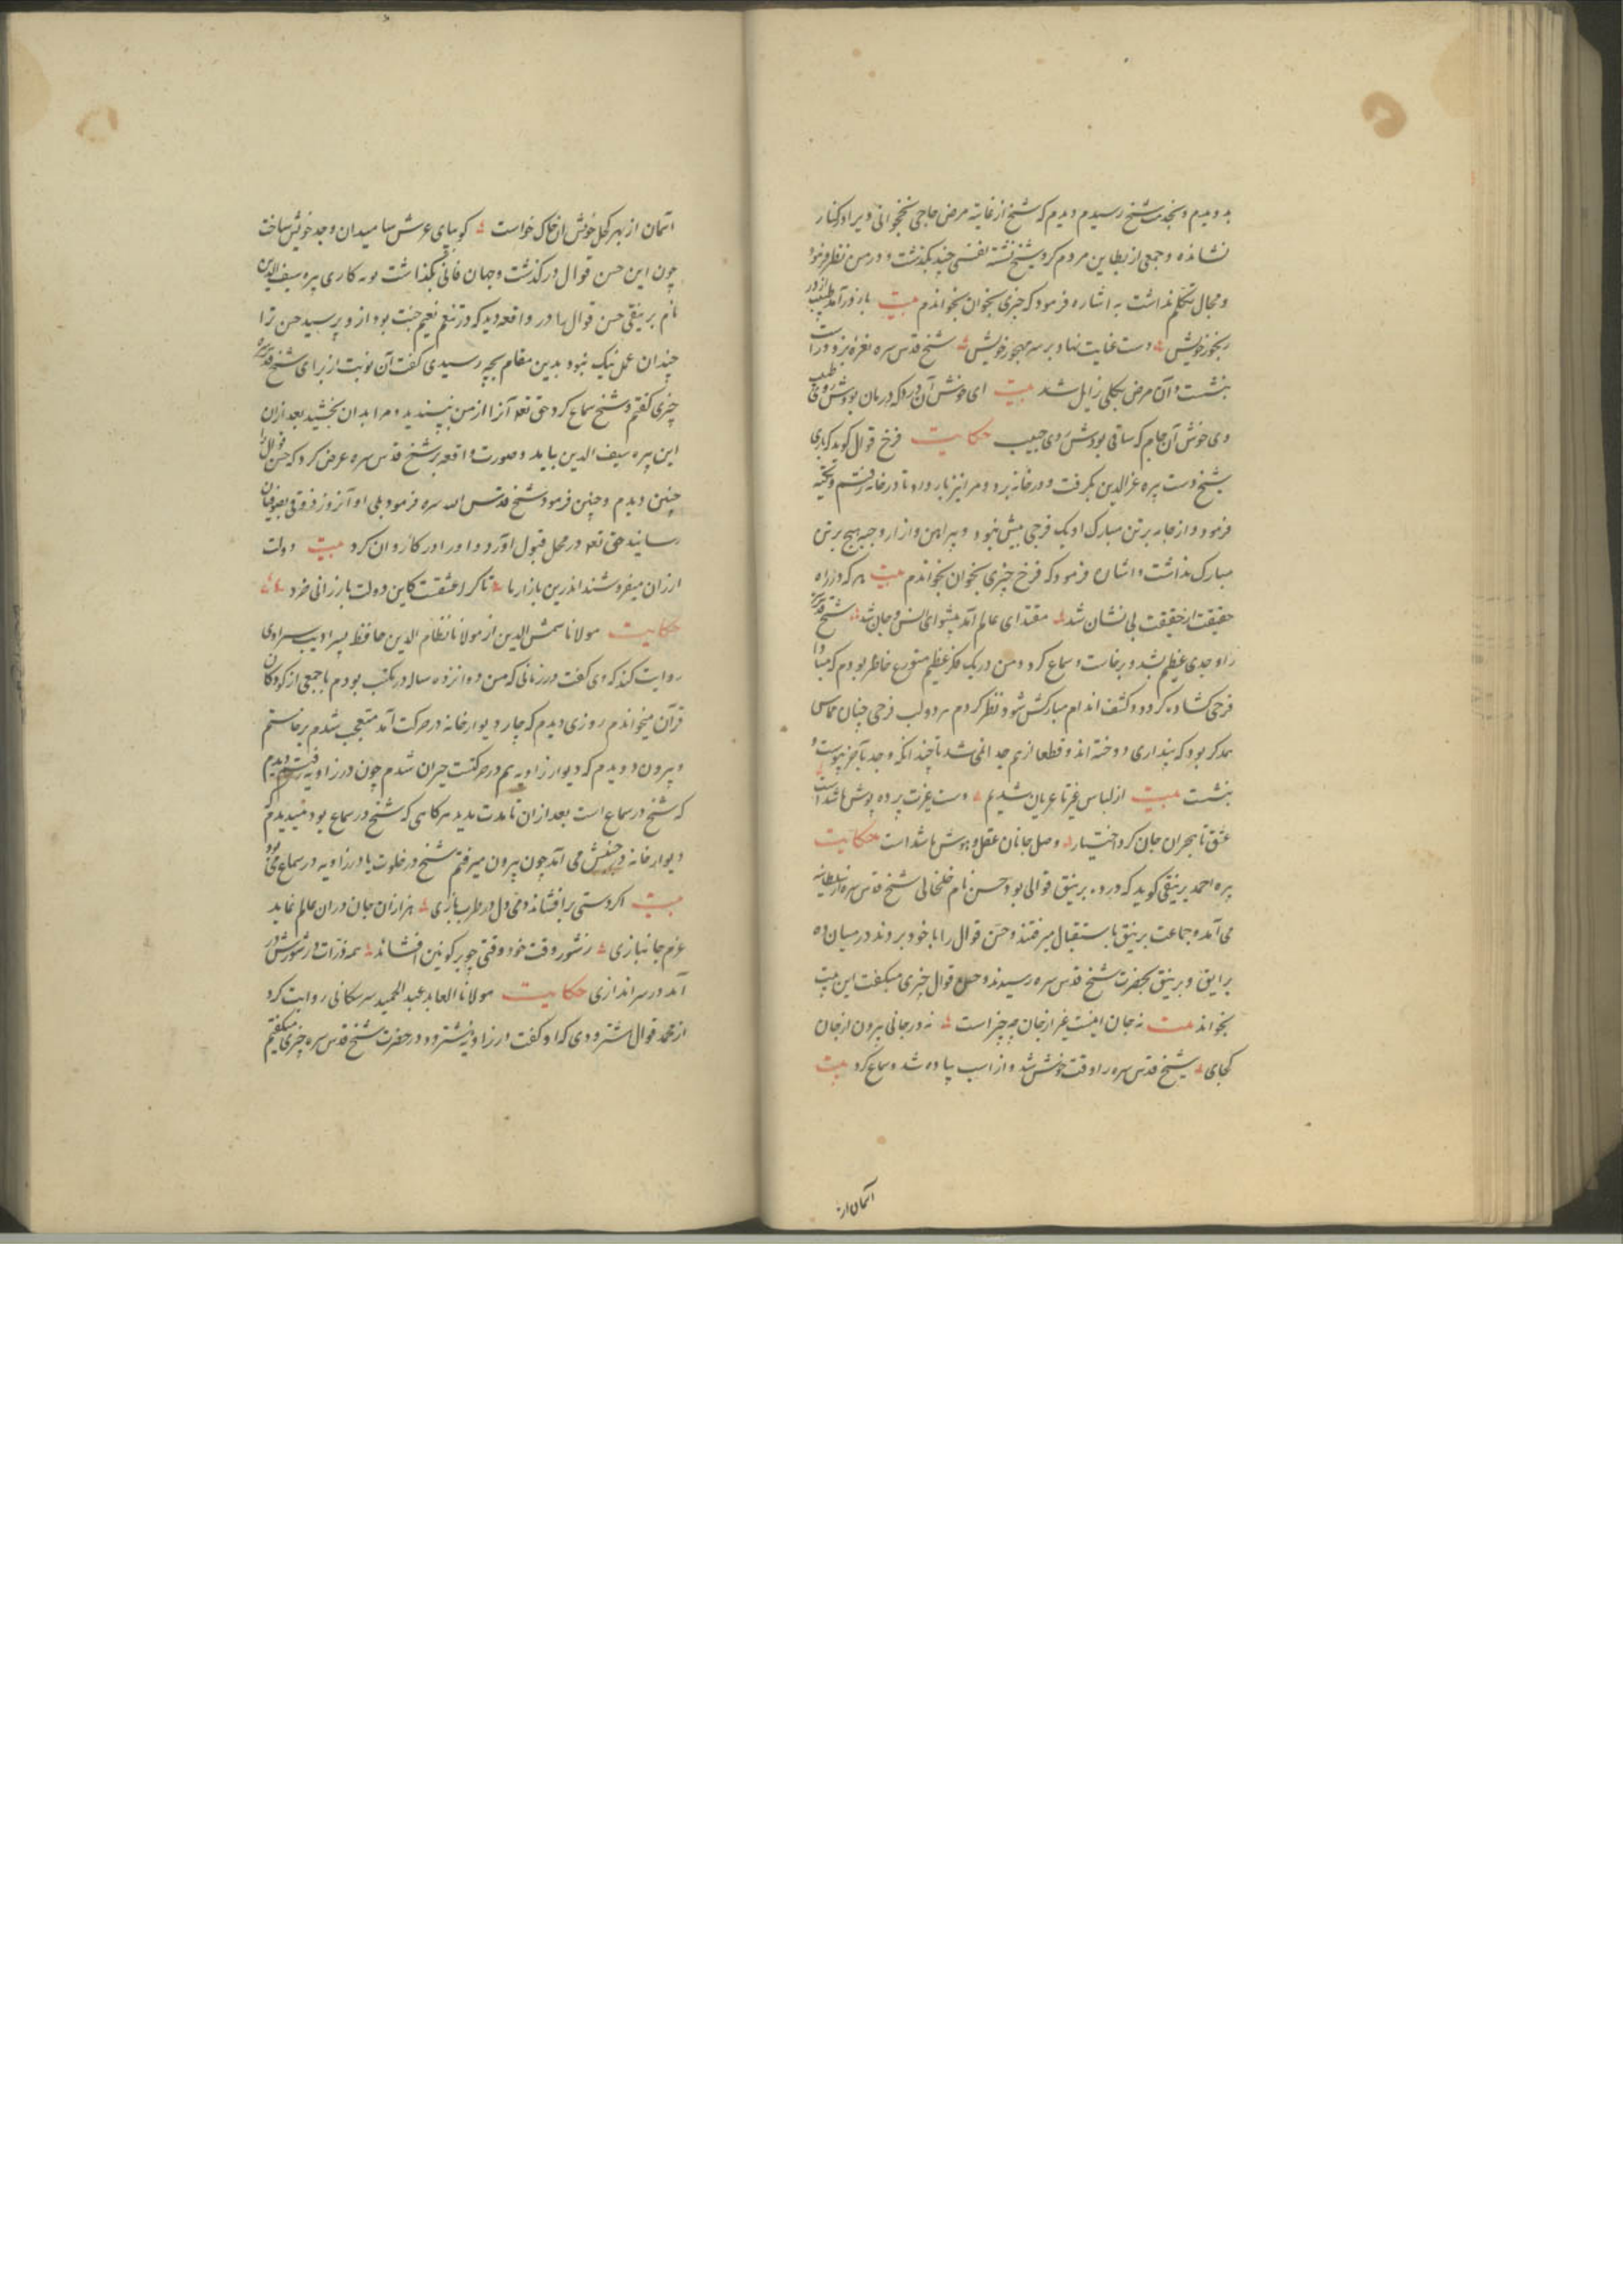 بدویدم و بخدمت شیخ رسیدم دیدم که شیخ از غایة مرض حاجی نخجوانی ویرا در کنار
نشانده و جمعی از بطاین مردم کرد شیخ نشسته نفسی چند بگذشت و در من نظر فرمود
و مجال تکلم نداشت به اشاره فرمود که چیزی بخوان بخواندم بیت باز درآمد طبیب از در
رنجور خویش دست عنایت نهاد بر سر مهجور خویش شیخ قدس سره نعره بزد و راست
بنشست و آن مرض بکلی زایل شد بیت ای خوش آن درد که درمان بودش روی طبیب
وی خوش آن جام که ساقی بودش وی حبیب حکایت فرخ قوال کوید که باری
شیخ دست پیره عزالدین بکرفت و در خانه برد و مرا نیز بار داد تا در خانه رفتم و تکیه
فرمود و از جامه بر تن مبارک او یک فرجی بیش نبود و پیراهن و ازار و جبه هیچ بر تن
مبارک نداشت و اشارت فرمود که فرخ چیزی بخوان بخواندم بیت هر که در راه
حقیقت از حقیقت بی نشان شد مقتدای عالم آمد پیشوای انس و جان شد شیخ قدس سره
را وجدی عظیم شد و برخاست و سماع کرد و من در یک فکر عظیم متوزع خاطر بودم که مبادا
فرجی کشاده کردد و کشف اندام مبارکش شود نظر کردم هر دو لب فرجی چنان مماس
همدکر بود که پنداری دوخته اند و قطعا از هم جدا نمی شد تا چندانکه وجد بآخر پیوست و
بنشست بیت از لباس غیر تا عریان شدیم دست عزت پرده پوش ما شد است
عشق تا هجران جان کرد اختیار وصل جانان عقل و هوش ما شد است حکایت
پیره احمد برنیقی کوید که در ده برنیق قوالی بود حسن نام خلخالی شیخ قدس سره از سلطانیه
می آمد و جماعت برنیق باستقبال میرفتند و حسن قوال را با خود بردند در میان ده
برایق و برنیق بحضرت شیخ قدس سره رسیدند و حسن قوال چیزی میکفت این بیت
بخواند بیت نه جان اینست غیر از جان چه چیز است نه در جانی نه بیرون از جان
کجای شیخ قدس سره را وقت خوش شد و از اسب پیاده شد و سماع کرد بیت
آسمان از
آسمان از بهر کحل خویش ازان خاک خواست کو بپای عرش سا میدان وجد خویش ساخت
چون این حسن قوال درکذشت و جهان فانی بگذاشت نوبه کاری پیره سیف الدین
نام برنیقی حسن قوال را در واقعه دید که در تنعم نعیم جنت بود ازو پرسید حسن ترا
چندان عمل نیک نبود بدین مقام بچه رسیدی کفت آن نوبت از برای شیخ قدس سره
چیزی کفتم و شیخ سماع کرد حق تعالی آنرا از من بپسندید و مرا بدان بخشید بعد ازان
این پیره سیف الدین بیامد و صورت واقعه بر شیخ قدس سره عرض کرد که حسن قوال را
چنین دیدم و چنین فرمود شیخ قدس الله سره فرمود بلی او آنروز ذوقی بصوفیان
رسانید حق تعالی در محل قبول آورد و او را در کار آن کرد بیت دولت
ارزان میفروشند اندرین بازار ما تا کرا عشقست کاین دولت بارزانی خرد
حکایت مولانا شمس الدین از مولانا نظام الدین حافظ پسر ادیب سراوی
روایت کند که وی کفت در زمانی که من دوانزده ساله در مکتب بودم با جمعی از کودکان
قرآن میخواندم روزی دیدم که چار دیوار خانه در حرکت آمد متعجب شدم برخاستم
و بیرون دویدم که دیوار زاویه هم در حرکتست حیران شدم چون در زاویه رفتم دیدم
که شیخ در سماع است بعد ازان تا مدت مدید هر کاهی که شیخ در سماع بود میدیدم که
دیوار خانه در جنبش می آمد چون بیرون میرفتم شیخ در خلوت یا در زاویه در سماع می بود
بیت اکر دستی برافشاند دمی دل در طرب بازی هزاران جان دران عالم نماید
عزم جانبازی ز شور وقت خود وقتی چو بر کونین افشاند همه ذرات در شورش در
آمد در سراندازی حکایت مولانا العابد عبد الحمید سرسکانی روایت کرد
از محمد قوال اشترودی که او کفت در زاویه اشترود در حضرت شیخ قدس سره چیزی میکفتم